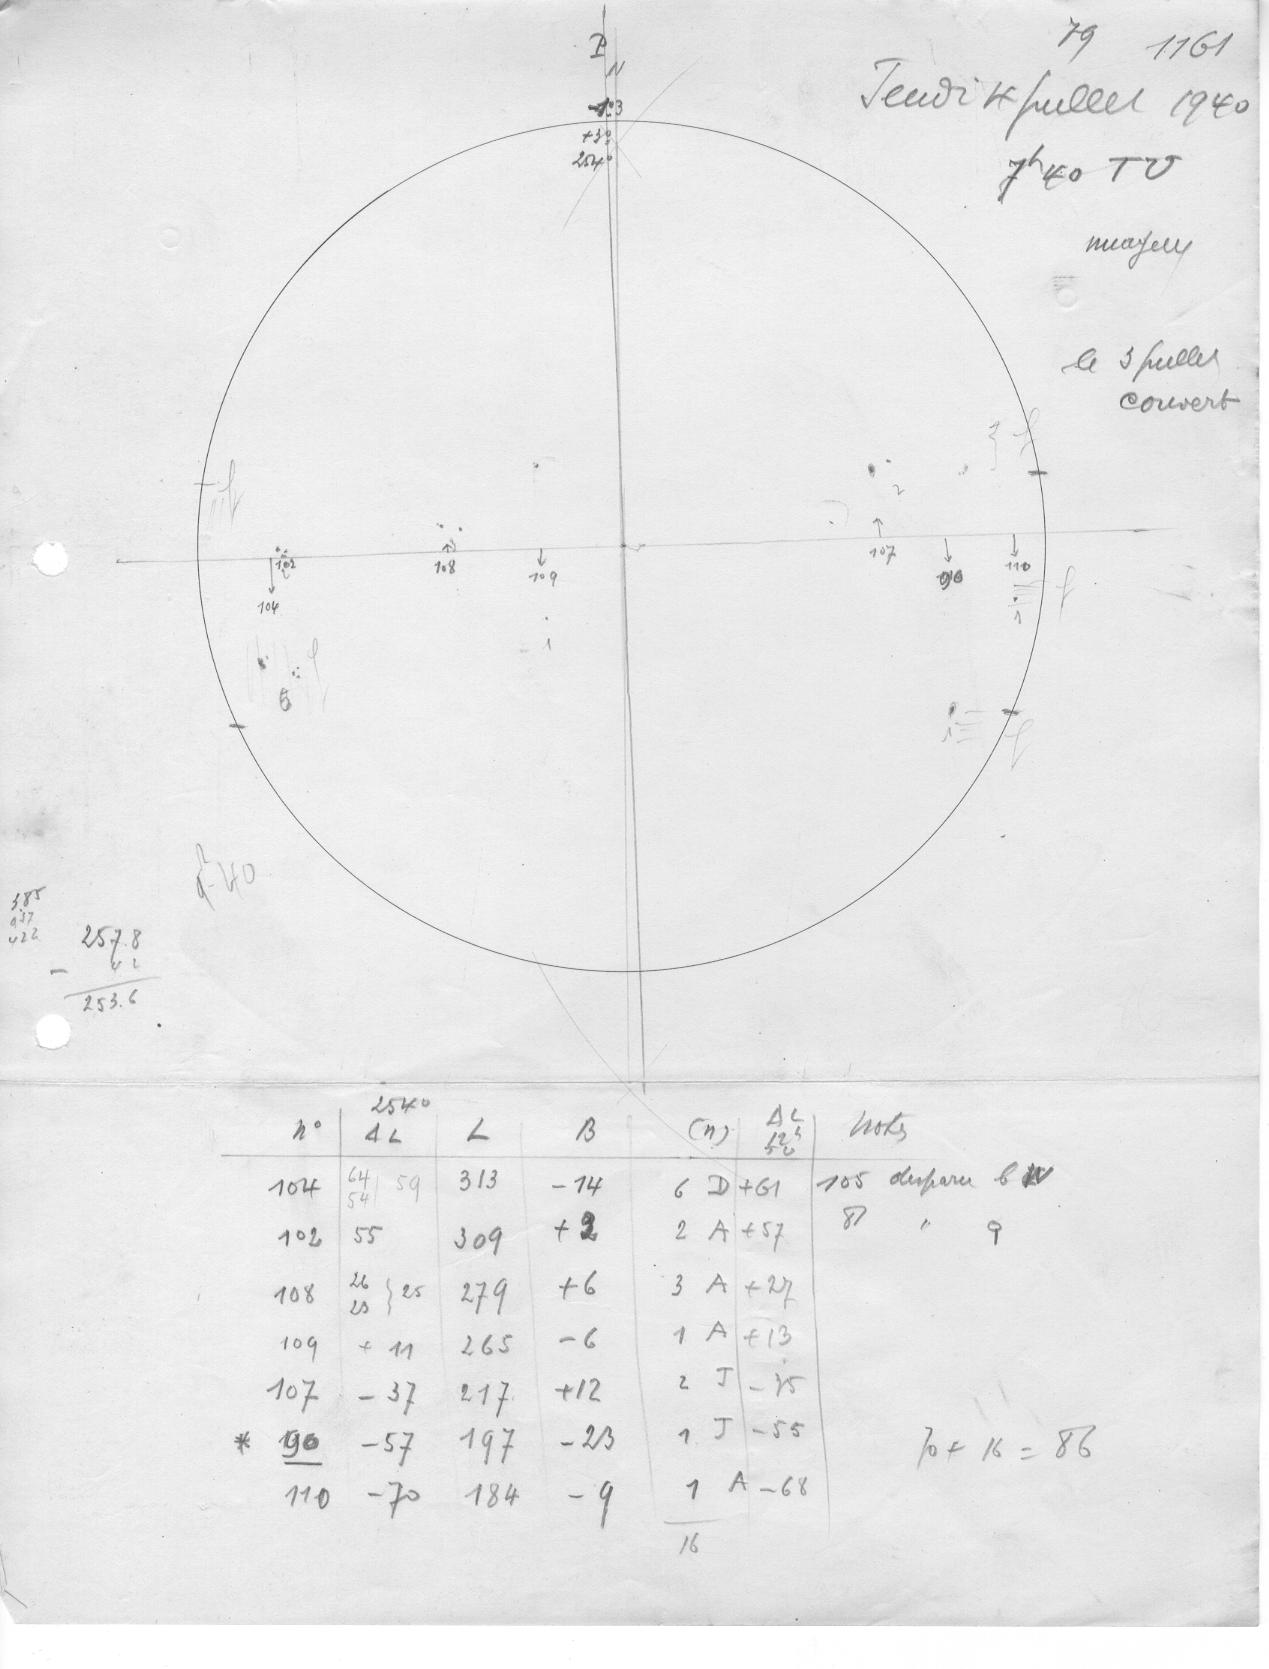 79 1161
Jeudi 4 juillet 1940
7h40 TU
nuageux
le 3 juillet
couvert
P
N
-1°.3
+3°
254°
f
f
2
107
90
110
102
2
108
3
109
104
f
1
1
6
f
1
f
257.8
- 4 2
253.6
n° | 254° ΔL | L | B | (n) | ΔL 12h 50 | Notes
104 | 64 54 59 | 313 | -14 | 6 D | +61 | 105 disparu
102 | 55 | 309 | +2 | 2 A | +57 | 87 "
108 | 26 23 } 25 | 279 | +6 | 3 A | +27
109 | +11 | 265 | -6 | 1 A | +13
107 | -37 | 217 | +12 | 2 J | -35
* 90 | -57 | 197 | -23 | 1 J | -55
70 + 16 = 86
110 | -70 | 184 | -9 | 1 A | -68
16